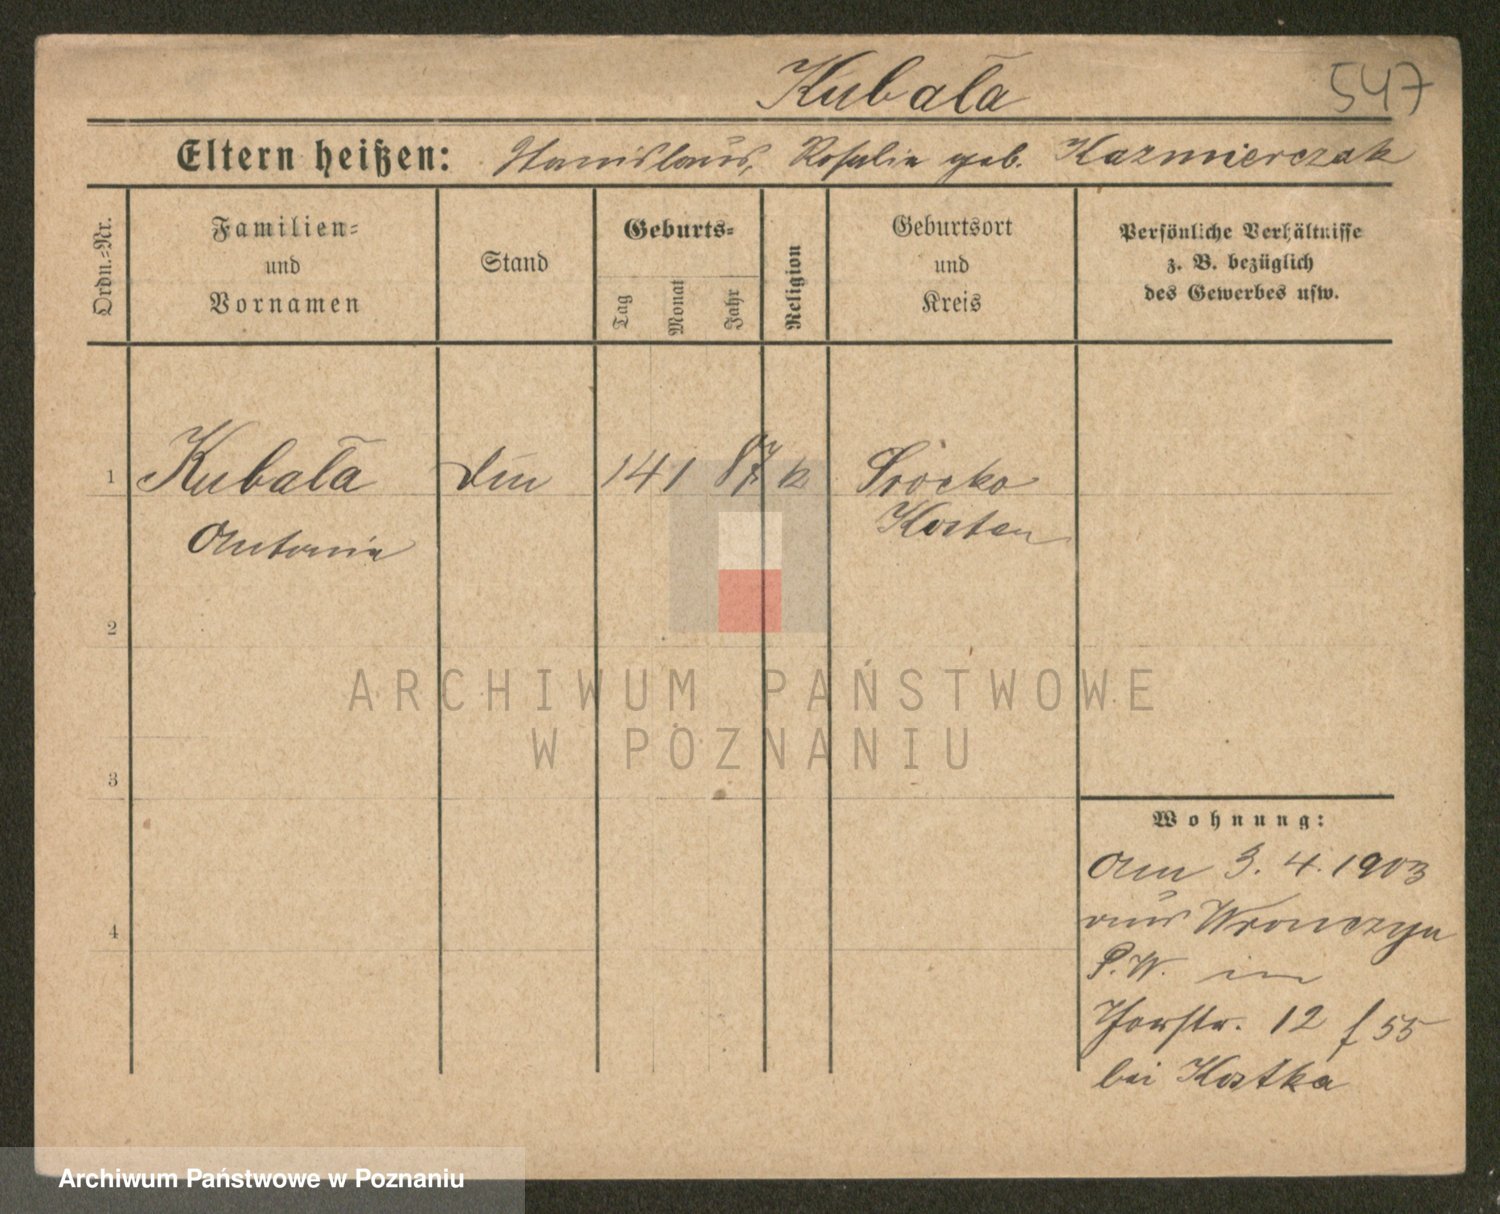 Kubała 547
Eltern heißen: Stanislaus, Rosalie geb. Kazmierczak
Ordn.-Nr.
Familien-
und
Vornamen
Stand
Geburts-
Tag
Monat
Jahr
Religion
Geburtsort
und
Kreis
Persönliche Verhältnisse
z. B. bezüglich
des Gewerbes usw.
1 Kubała 14 1 87 k Srocko
Antonie Kosten
2
3
4
ARCHIWUM PAŃSTWOWE
W POZNANIU
Wohnung:
Am 3. 4. 1903
aus Wronczyn
P. W. in
12 f 55
bei Kostka
Archiwum Państwowe w Poznaniu